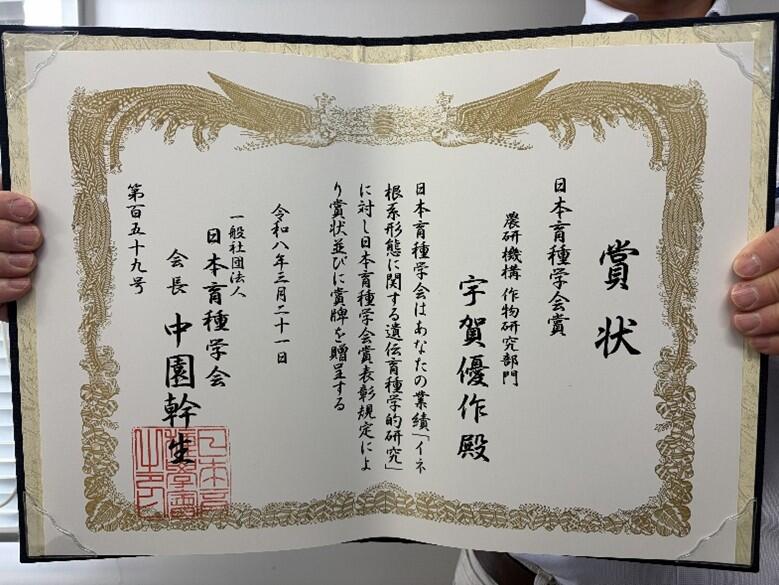 賞状
日本育種学会賞
農研機構 作物研究部門
宇賀優作殿
日本育種学会はあなたの業績「イネ
根系形態に関する遺伝育種学的研究」
に対し日本育種学会賞表彰規定によ
り賞状並びに賞牌を贈呈する
令和八年三月二十一日
一般社団法人
日本育種学会
会長 中園幹生
第百五十九号